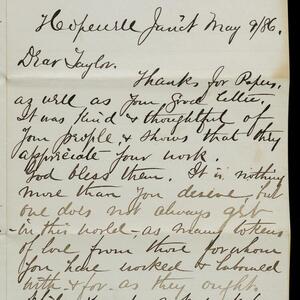 Hopewell Junct May 9/86.
Dear Taylor.
Thanks for Papers.
as well as Your Good Letter.
It was kind & thoughtful of
Your people, & shows that they
appreciate Your work.
God bless them. It is nothing
more than You deserve, but
one does not always get
in this world, as many tokens
of love from those for whom
You have worked & laboured
with & for as they ought.